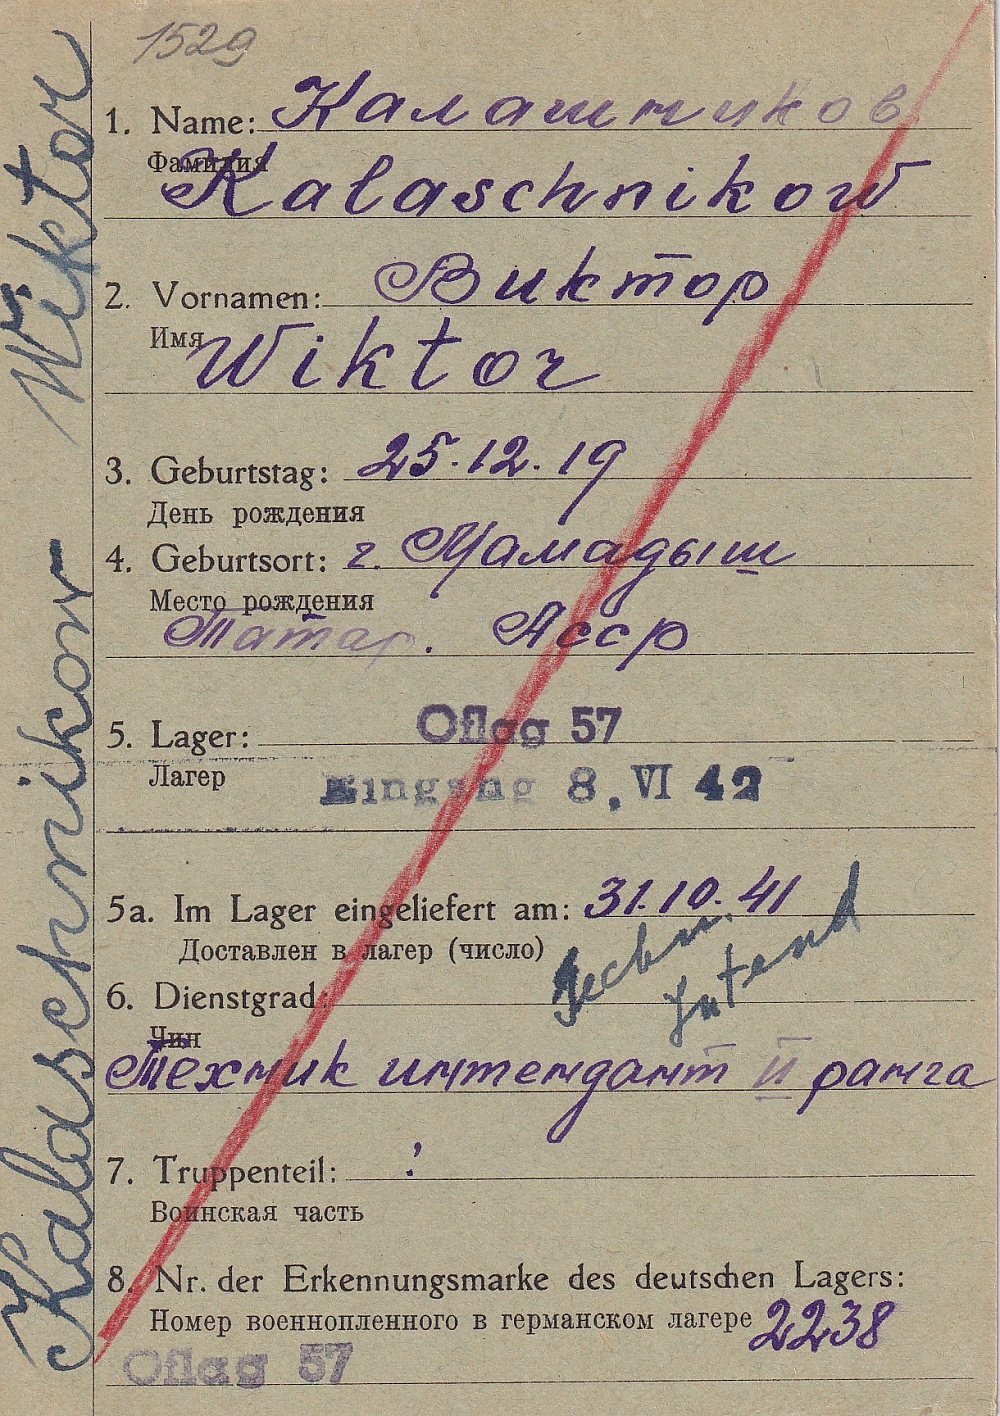 1529
Kalaschnikow Wiktor
1. Name: Калашников
Фамилия
Kalaschnikow
2. Vornamen: Виктор
Имя
Wiktor
3. Geburtstag: 25.12.19
День рождения
4. Geburtsort: г. Мамадыш
Место рождения
Татар. Асср
5. Lager: Oflag 57
Лагер
Eingang 8. VI 42
5a. Im Lager eingeliefert am: 31.10.41
Доставлен в лагер (число)
Techn.
6. Dienstgrad: Intend
Чин
Техник интендант II ранга
7. Truppenteil: :
Воинская часть
8. Nr. der Erkennungsmarke des deutschen Lagers:
Номер военнопленного в германском лагере 2238
Oflag 57